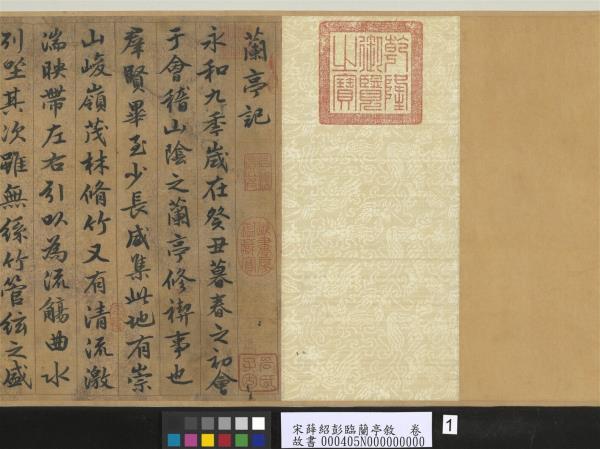 乾隆御覽之寶
蘭亭記
永和九年歲在癸丑暮春之初會
于會稽山陰之蘭亭修禊事也
羣賢畢至少長咸集此地有崇
山峻嶺茂林脩竹又有清流激
湍映帶左右引以為流觴曲水
列坐其次雖無絲竹管絃之盛
宋薛紹彭臨蘭亭敘　卷
故書000405N000000000
1